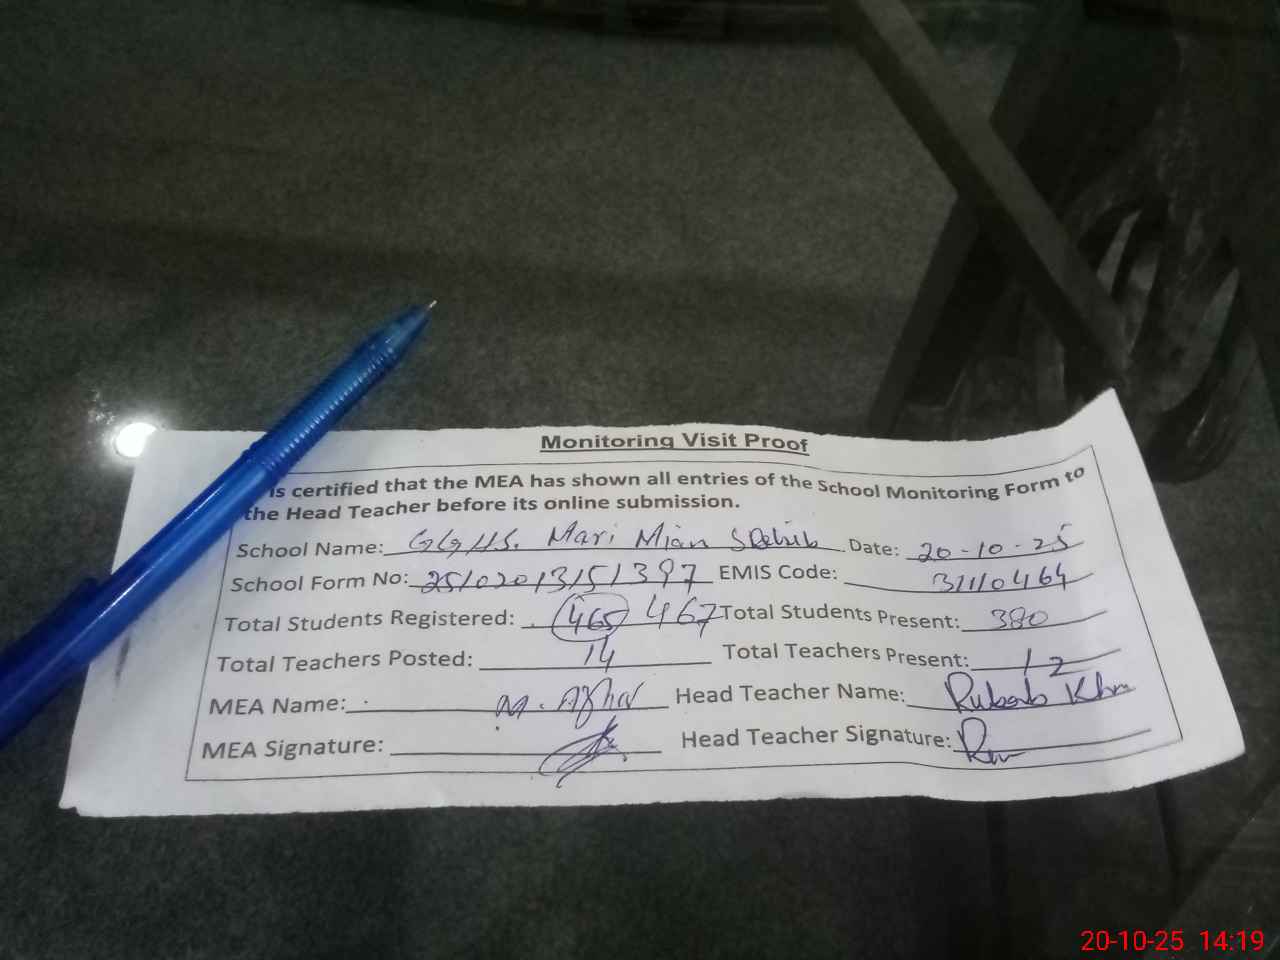 Monitoring Visit Proof
is certified that the MEA has shown all entries of the School Monitoring Form to
the Head Teacher before its online submission.
School Name: GGHS. Mari Mian Sahib Date: 20-10-25
School Form No: EMIS Code: 31110464
Total Students Registered: 465 467 Total Students Present: 380
Total Teachers Posted: 14 Total Teachers Present: 12
MEA Name: M. Head Teacher Name: Rubab Khan
MEA Signature: Head Teacher Signature:
20-10-25 14:19